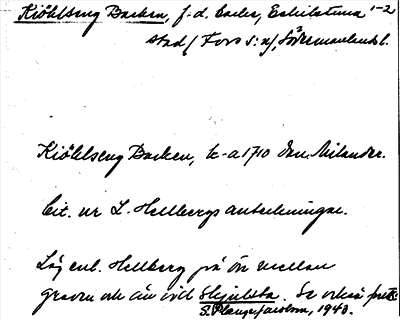 Kiöhlseng Backen, f.d. backe, Eskilstuna 1-2
stad (Fors s:n), Södermanlands l.
Kiöhlseng Backen, k-a 1710 Dan. Milander.
Cit. ur L. Hellbergs anteckningar.
Låg enl. Hellberg på ön mellan
graven och ån vid Skjulsta. Se också
S. Plange Jacobson, 1940.